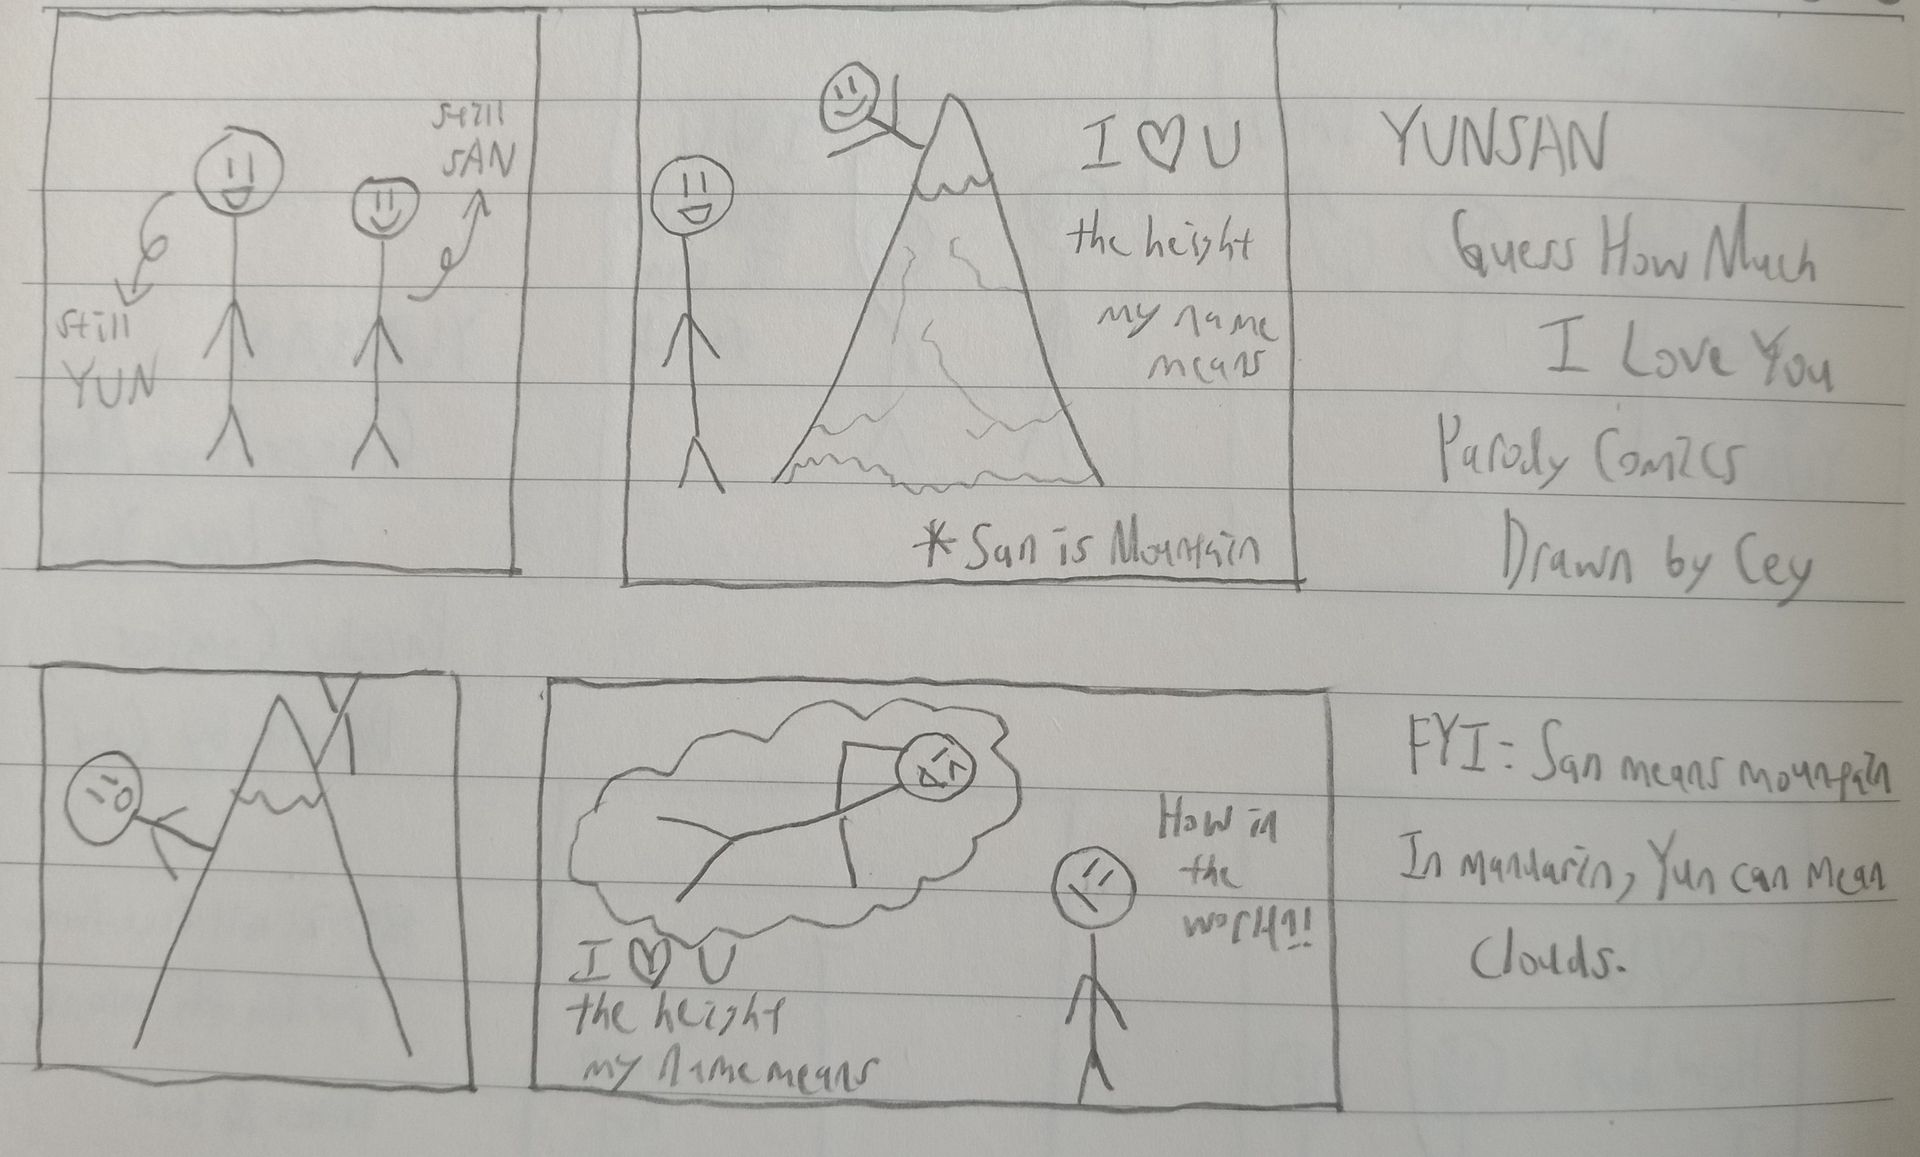 still
SAN
still
YUN
I ♡ U
the height
my name
means
*San is Mountain
YUNSAN
Guess How Much
I Love You
Parody Comics
Drawn by Cey
I ♡ U
the height
my name means
How in
the
world?!!
FYI: San means mountain
In mandarin, Yun can mean
Clouds.